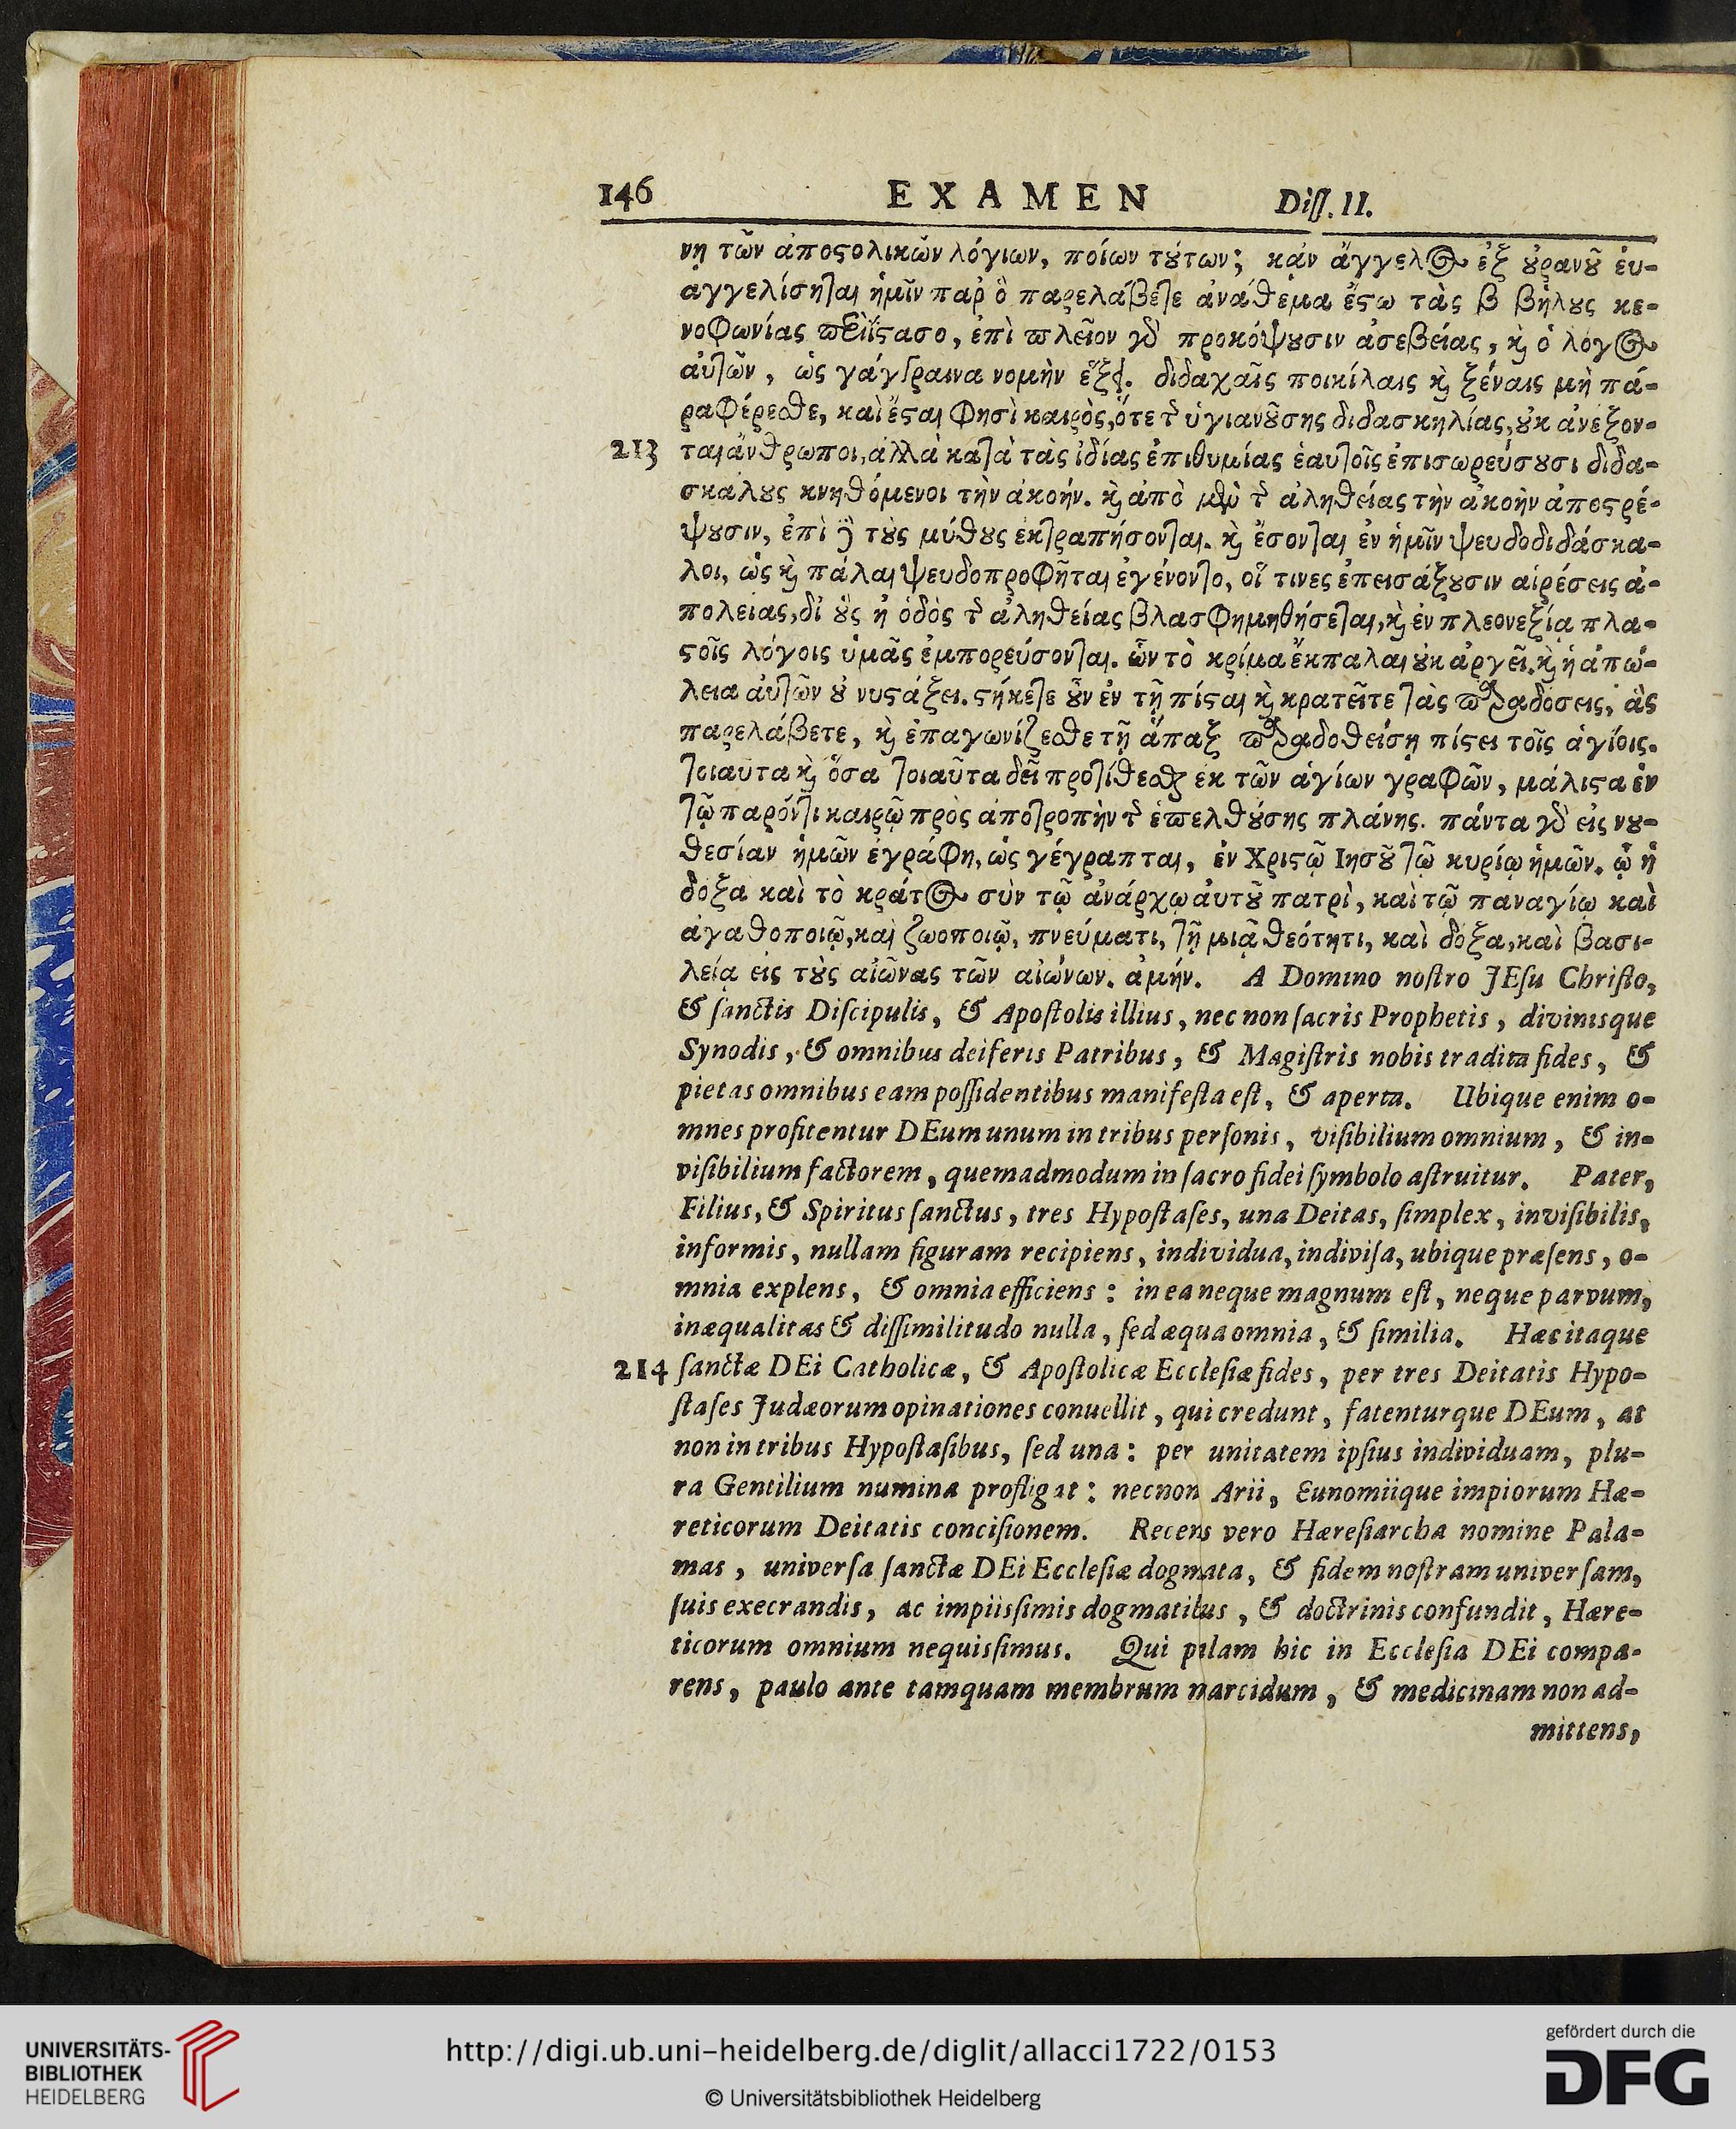 146 EXAMEN Diſſ. II.
νη τῶν ἀποςολικῶν λόγιων, ποίων τȣ́των; κᾀν ἄγγελος ἐξ ȣ̓ρανȣ͂ ἐυ-
αγγελίσηται ἡμῖν παρ ὃ παρελάβετε ἀνάθεμα ἔςω τὰς β βήλȣς κε-
νοφωνίας περιΐςασο, ἐπὶ πλεῖον γδ προκόψȣσιν ἀσεβείας, ϗ̀ ὁ λόγος
αὐτῶν, ὡς γάγγραινα νομὴν ἕξει. διδαχαῖς ποικίλαις ϗ̀ ξέναις μὴ πά-
ραφέρεσθε, καὶ ἔςαι φησὶ καιρὸς, ὅτε τ ὑγιανȣ́σης διδασκηλίας, ȣ̓κ ἀνέξον-
213 ται ἄνθρωποι, ἀλλὰ κατὰ τὰς ἰδίας ἐπιθυμίας ἑαυτοῖς ἐπισωρεύσȣσι διδα-
σκαλȣς κνηθόμενοι τὴν ἀκοήν. ϗ̀ ἀπὸ μὲν τ ἀληθείας τὴν ἀκοὴν ἀποςρέ-
ψȣσιν, ἐπὶ δὲ τȣ̀ς μύθȣς ἐκτραπήσονται. ϗ̀ ἔσονται ἐν ἡμῖν ψευδοδιδάσκα-
λοι, ὡς ϗ̀ πάλαι ψευδοπροφῆται ἐγένοντο, οἵ τινες ἐπεισάξȣσιν αἱρέσεις ἀ-
πολείας, δἰ ȣ̔̀ς ἡ ὁδὸς τ ἀληθείας βλασφημηθήσεται, ϗ̀ ἐν πλεονεξίᾳ πλα-
ςοῖς λόγοις ὑμᾶς ἐμπορεύσονται. ὧν τὸ κρίμα ἔκπαλαι ȣ̓κ ἀργεῖ. ϗ̀ ἡ ἀπώ-
λεια ἀυτῶν ȣ̓ νυςάξει. ςήκετε ȣ̓͂ν ἐν τῇ πίςαι ϗ̀ κρατεῖτε τὰς παραδόσεις, ἃς
παρελάβετε, ϗ̀ ἐπαγωνίζεσθε τῇ ἅπαξ παραδοθείσῃ πίςει τοῖς ἁγίοις.
τοιαυτα ϗ̀ ὅσα τοιαῦτα δεῖ προτίθεσθαι εκ τῶν ἁγίων γραφῶν, μάλιςα ἐν
τῷ παρόντι καιρῷ πρὸς ἀποτροπὴν τ ἐπελθȣ́σης πλάνης. πάντα γδ εἰς νȣ-
θεσίαν ἡμῶν ἐγράφη, ὡς γέγραπται, ἐν Χριςῷ Ιησȣ͂ τῷ κυρίῳ ἡμῶν. ᾧ ἡ
δοξα καὶ τὸ κράτος σὺν τῷ ἀνάρχῳ ἀυτȣ͂ πατρὶ, καὶ τῷ παναγίῳ καὶ
ἀγαθοποιῷ, καὶ ζωοποιῷ, πνεύματι, τῇ μιᾷ θεότητι, καὶ δοξα, καὶ βασι-
λείᾳ εἰς τȣ̀ς αἰῶνας τῶν αἰώνων. ἀμήν. A Domino noſtro JEſu Chriſto,
& ſanctis Diſcipulis, & Apoſtolis illius, nec non ſacris Prophetis, divinisque
Synodis, & omnibus deiferis Patribus, & Magiſtris nobis tradita fides, &
pietas omnibus eam poſſidentibus manifeſta eſt, & aperta. Ubique enim o-
mnes profitentur DEum unum in tribus perſonis, viſibilium omnium, & in-
viſibilium factorem, quemadmodum in ſacro fidei ſymbolo aſtruitur. Pater,
Filius, & Spiritus ſanctus, tres Hypoſtaſes, una Deitas, ſimplex, inviſibilis,
informis, nullam figuram recipiens, individua, indiviſa, ubique præſens, o-
mnia explens, & omnia efficiens: in ea neque magnum eſt, neque parvum,
inæqualitas & diſſimilitudo nulla, ſed æqua omnia, & ſimilia. Hæc itaque
214 ſanctæ DEi Catholicæ, & Apoſtolicæ Eccleſiæ fides, per tres Deitatis Hypo-
ſtaſes Judæorum opinationes conuellit, qui credunt, fatenturque DEum, at
non in tribus Hypoſtaſibus, ſed una: per unitatem ipſius individuam, plu-
ra Gentilium numina profligat: necnon Arii, Eunomiique impiorum Hæ-
reticorum Deitatis conciſionem. Recens vero Hæreſiarcha nomine Pala-
mas, univerſa ſanctæ DEi Eccleſiæ dogmata, & fidem noſtram univerſam,
ſuis execrandis, ac impiisſimis dogmatibus, & doctrinis confundit, Hære-
ticorum omnium nequisſimus. Qui pilam hic in Eccleſia DEi compa-
rens, paulo ante tamquam membrum narcidum, & medicinam non ad-
mittens,
UNIVERSITÄTS-
BIBLIOTHEK
HEIDELBERG
http://digi.ub.uni-heidelberg.de/diglit/allacci1722/0153
© Universitätsbibliothek Heidelberg
gefördert durch die
DFG